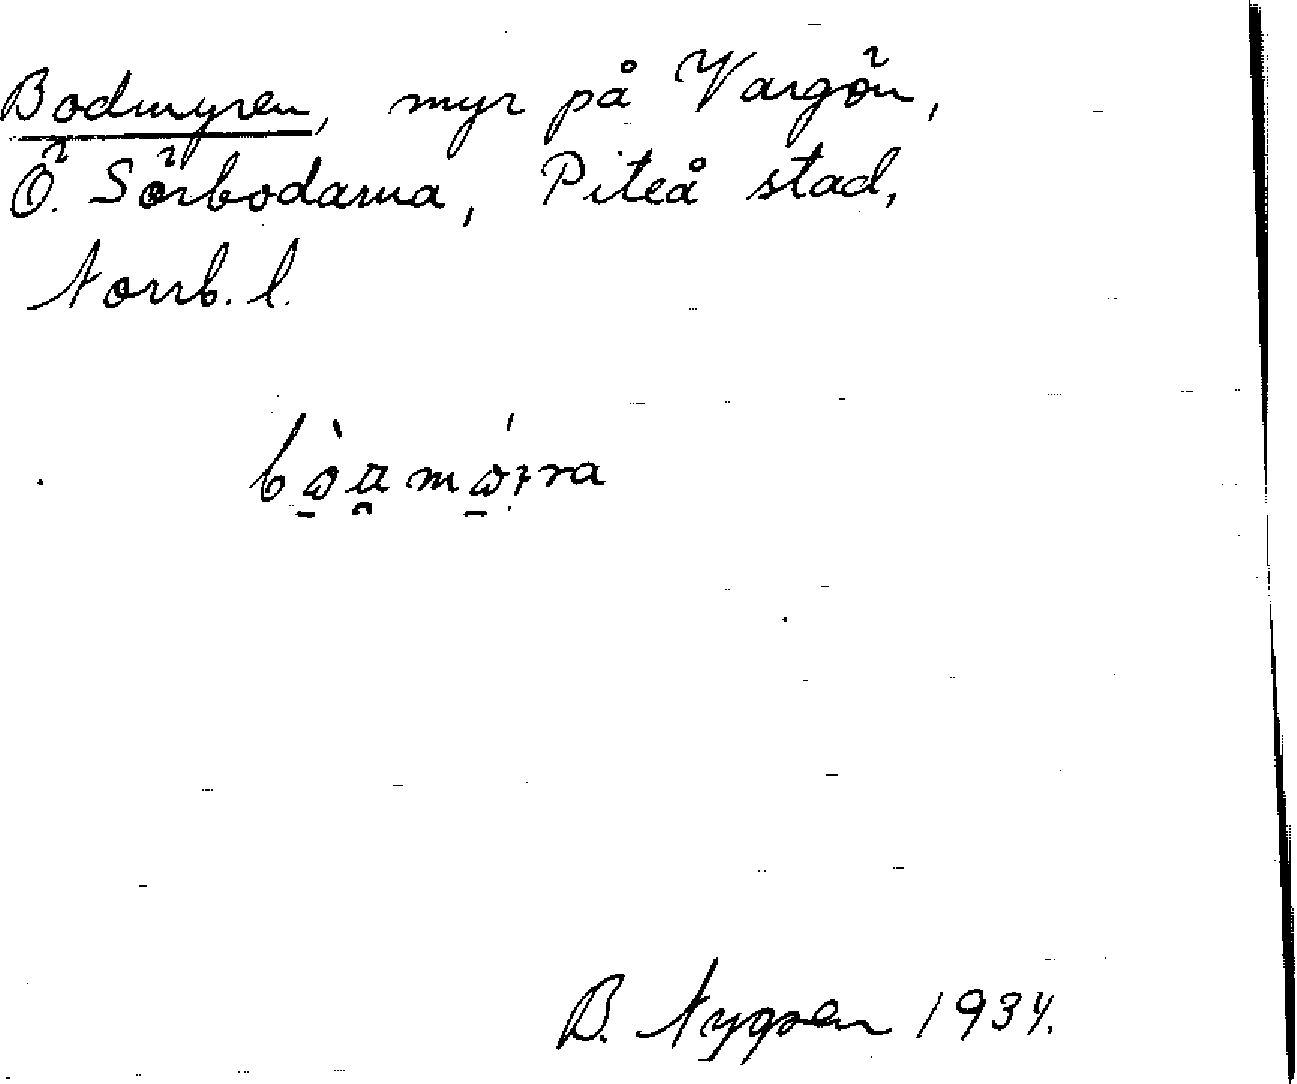 Bodmyren, myr på Vargön,
Ö. Sörbodarna, Piteå stad,
Norrb. l.
B. Nygren 1934.